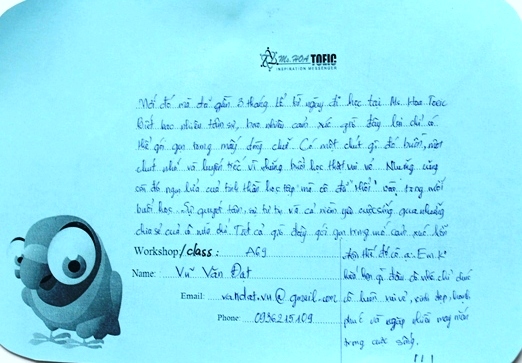 Ms. HOA TOEIC
INSPIRATION MESSENGER
Mới đó mà đã gần 3 tháng kể từ ngày đi học tại Ms Hoa Toeic
biết bao nhiêu tâm sự, bao nhiêu cảm xúc giờ đây lại chỉ có
thể gói gọn trong mấy dòng chữ. Có một chút gì đó buồn, một
chút nhớ và luyến tiếc vì những buổi học thật vui vẻ. Nhưng cũng
có đó ngọn lửa của tinh thần học tập mà cô đã "thổi" vào trong mỗi
buổi học. Sự quyết tâm, sự tự tin và cả niềm yêu cuộc sống qua những
chia sẻ của cô nữa chứ. Tất cả giờ đây gói gọn trong một cảm xúc
Workshop/class: A69
Name: Vũ Văn Đạt
Email: vandat.vu@gmail.com
Phone: 0936215109
cô ạ. Em k
hứa hẹn gì đâu, chỉ chúc
cô luôn vui vẻ, xinh đẹp, hạnh
phúc và ngập nhiều may mắn
trong cuộc sống.